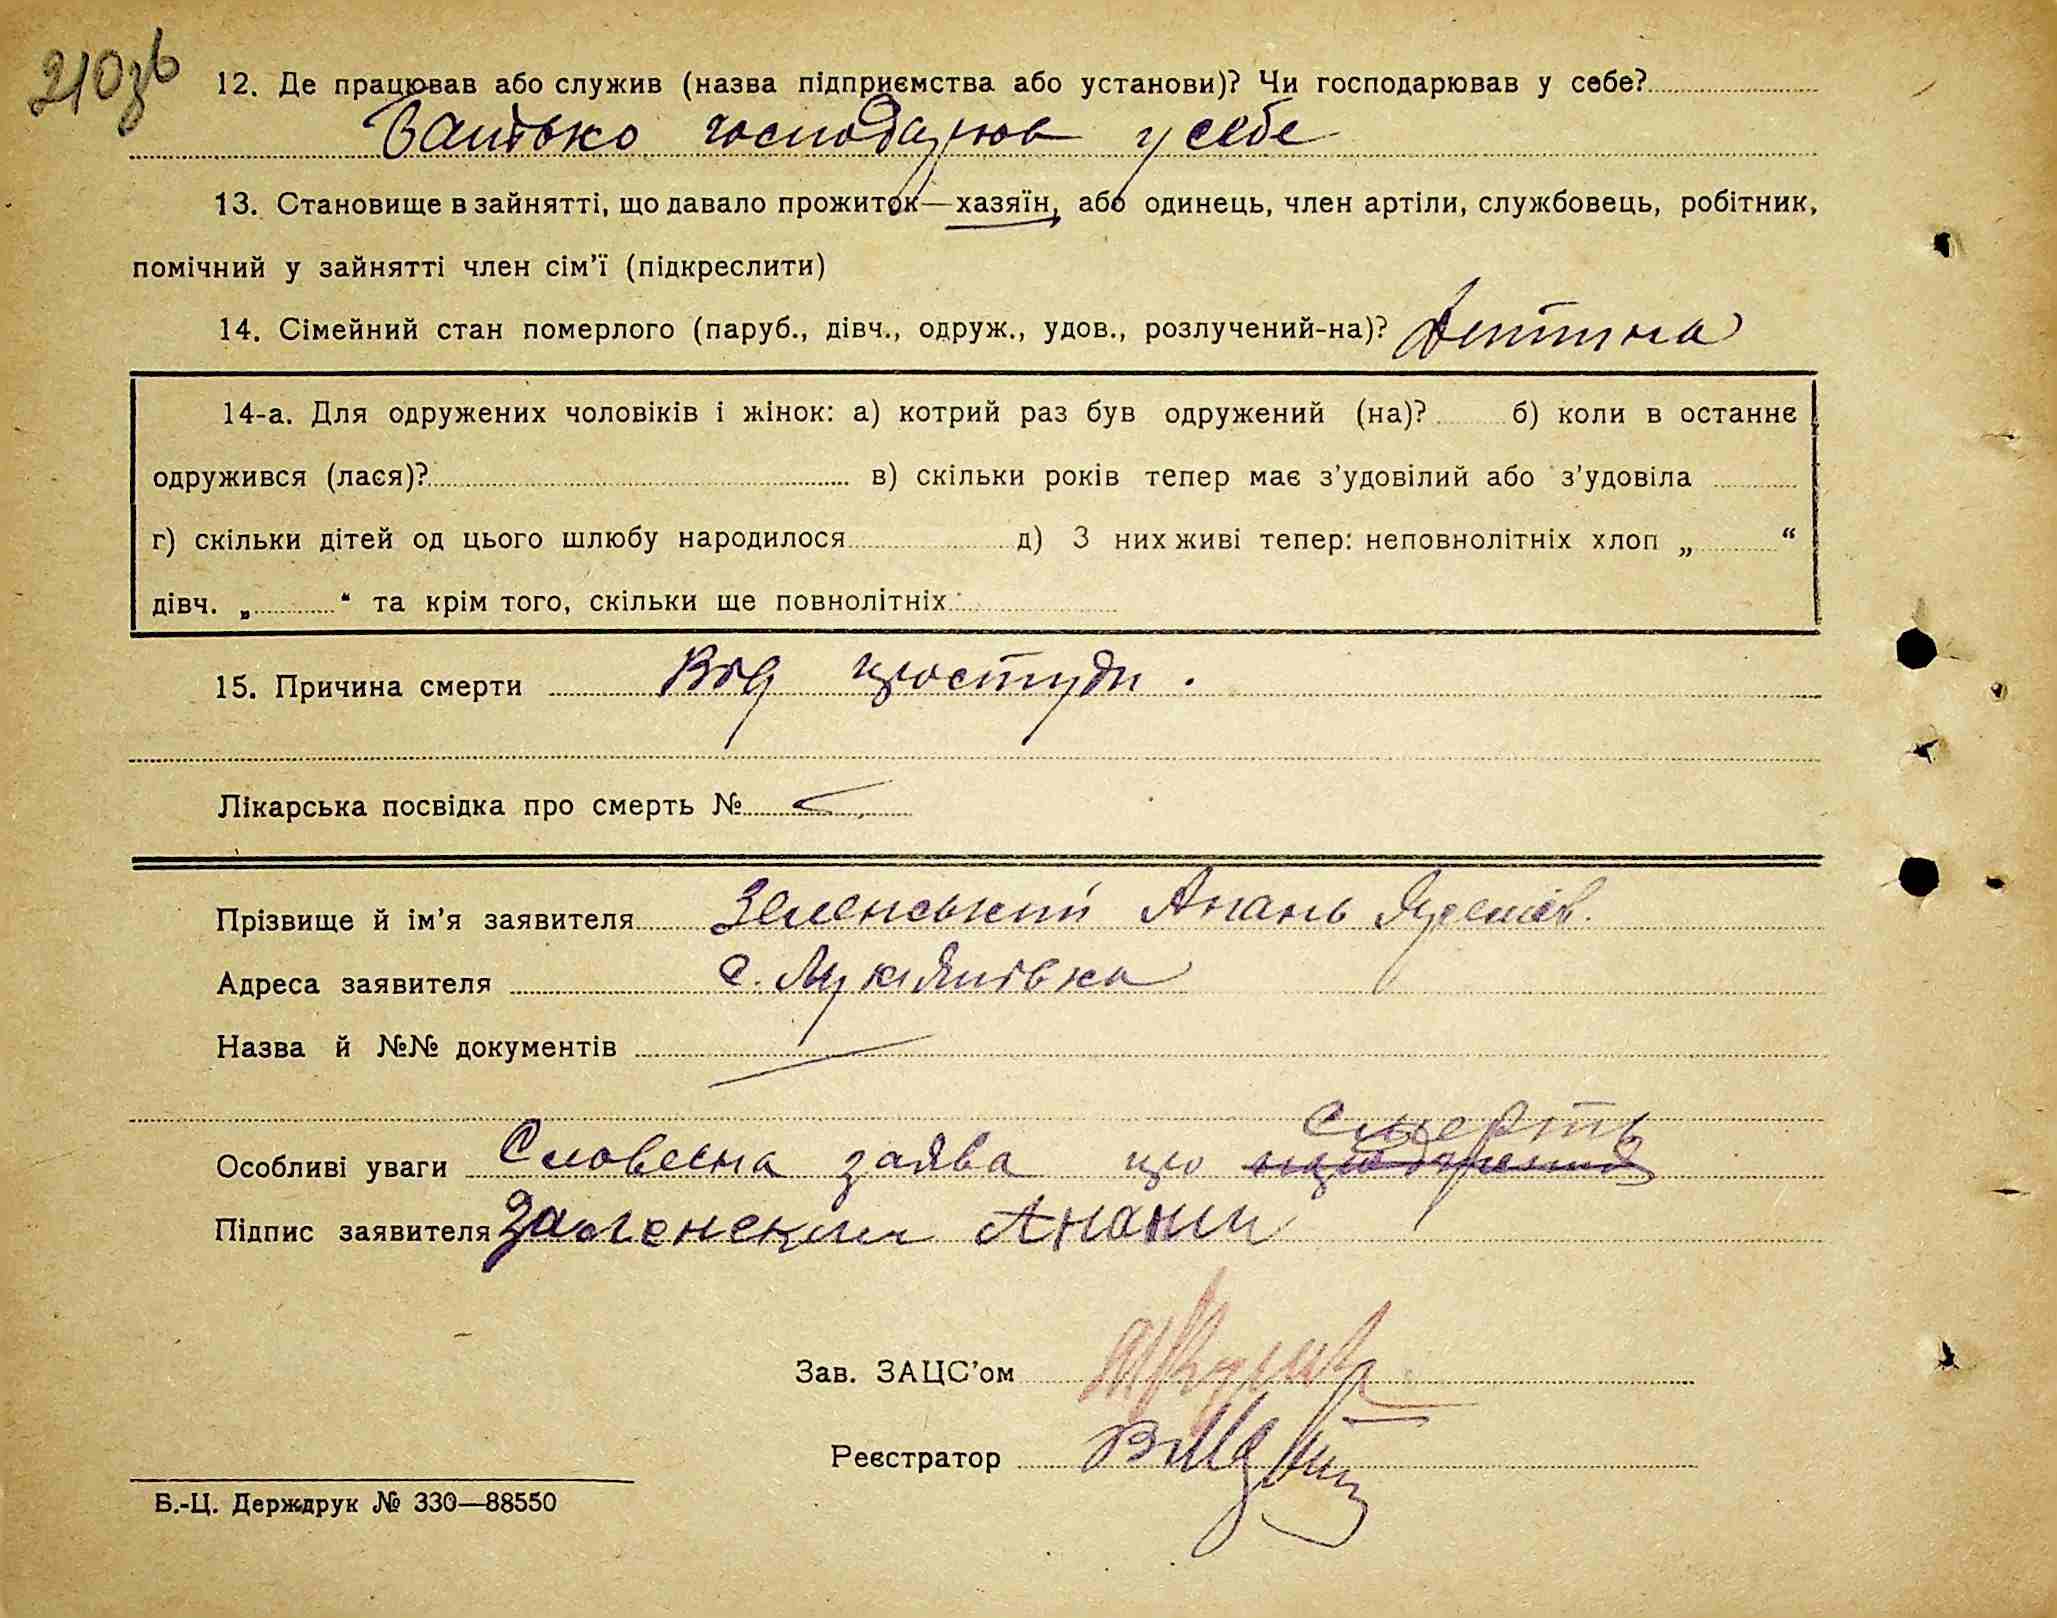 210зв
12. Де працював або служив (назва підприємства або установи)? Чи господарював у себе?
Батько господарюв у себе
13. Становище в зайнятті, що давало прожиток—хазяїн, або одинець, член артіли, службовець, робітник,
помічний у зайнятті член сім'ї (підкреслити)
14. Сімейний стан померлого (паруб., дівч., одруж., удов., розлучений-на)? Дитина
14-а. Для одружених чоловіків і жінок: а) котрий раз був одружений (на)? б) коли в останнє
одружився (лася)? в) скільки років тепер має з'удовілий або з'удовіла
г) скільки дітей од цього шлюбу народилося д) З них живі тепер: неповнолітніх хлоп „ “
дівч. „ “ та крім того, скільки ще повнолітніх
15. Причина смерти Від простуди.
Лікарська посвідка про смерть №
Прізвище й ім'я заявителя Зеленський Анань
Адреса заявителя с. Лукянівка
Назва й №№ документів
смерть
Особливі уваги Словесна заява про
Підпис заявителя Анани
Зав. ЗАЦС'ом
Реєстратор
Б.-Ц. Держдрук № 330—88550